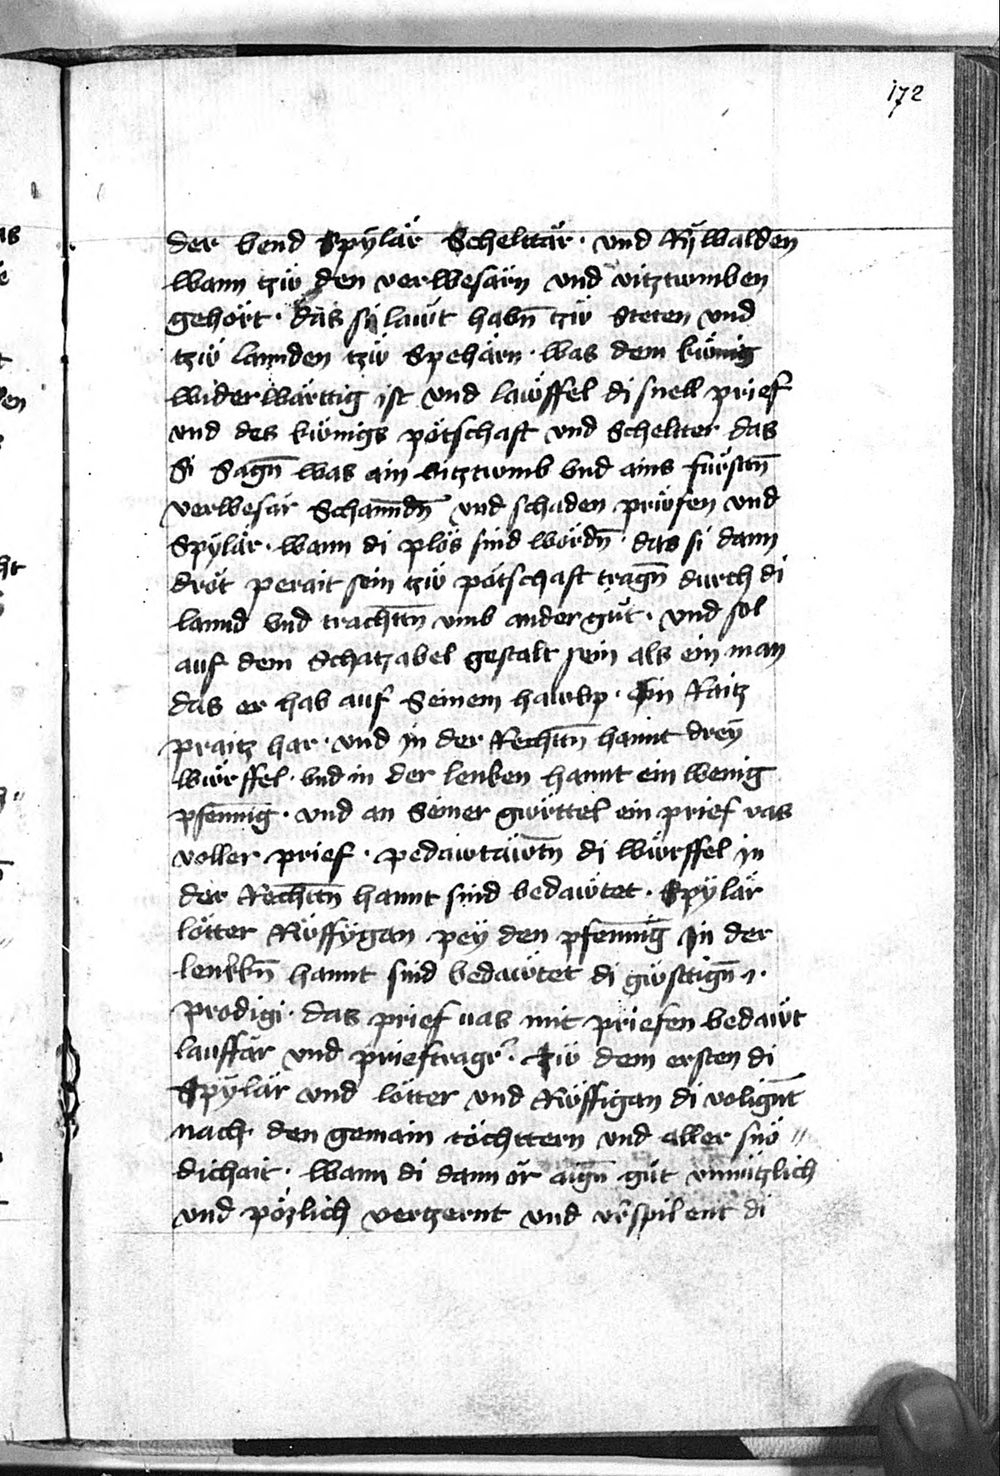 172
der vend Spÿlär Schelttär · vnd Rÿwalden
wann tzẅ den verwesärn vnd vitztwmben
gehört · das si lawt habn̄ tzẅ Steten vnd
tzẅ lannden tzẅ Spehärn · was dem künig
widerwärttig ist vnd lawffel di snell prief
vnd des künigs pötschaft vnd Scheltter das
Si Sagn̄ was ain vitztwmb vnd ains fürstn̄
verwesär Schanndn̄ vnd schaden prüfen vnd
Spÿlär · wann di plös sind wördn̄ · das si dann
dröt perait sein tzẅ pötschaft tragn̄ durch di
lannd vnd trachttn̄ vmb ander güt · vnd sol
auf dem Schatzabel gestalt sein als ein man
das er hab auf Seinem hawbp · Ain Raitz
praitz har · vnd in der Rechttn̄ hannt dreÿ
würffel · vnd in der lenken hannt ein wenig
pfennig · vnd an Seiner gürttel ein prief vas
voller prief · pedawtäwtn̄ di würffel in
der Rechttn̄ hannt sind bedawtet · Spÿlär
lötter Rüffÿgan peÿ den pfennig In der
lenkkn̄ hannt sind bedawtet di güsttign̄
prodigi · das prief uas mit priefen bedawt
lauffär vnd prieftragr̄ · Tzẅ dem ersten di
Spÿlär vnd lötter vnd Rüffigan di volignt̄
nach den gemain töchttern vnd aller snö //
dichait · wann di dann ör aign̄ güt vnnützlich
vnd pözlich vertzernt vnd vr̄spilent di